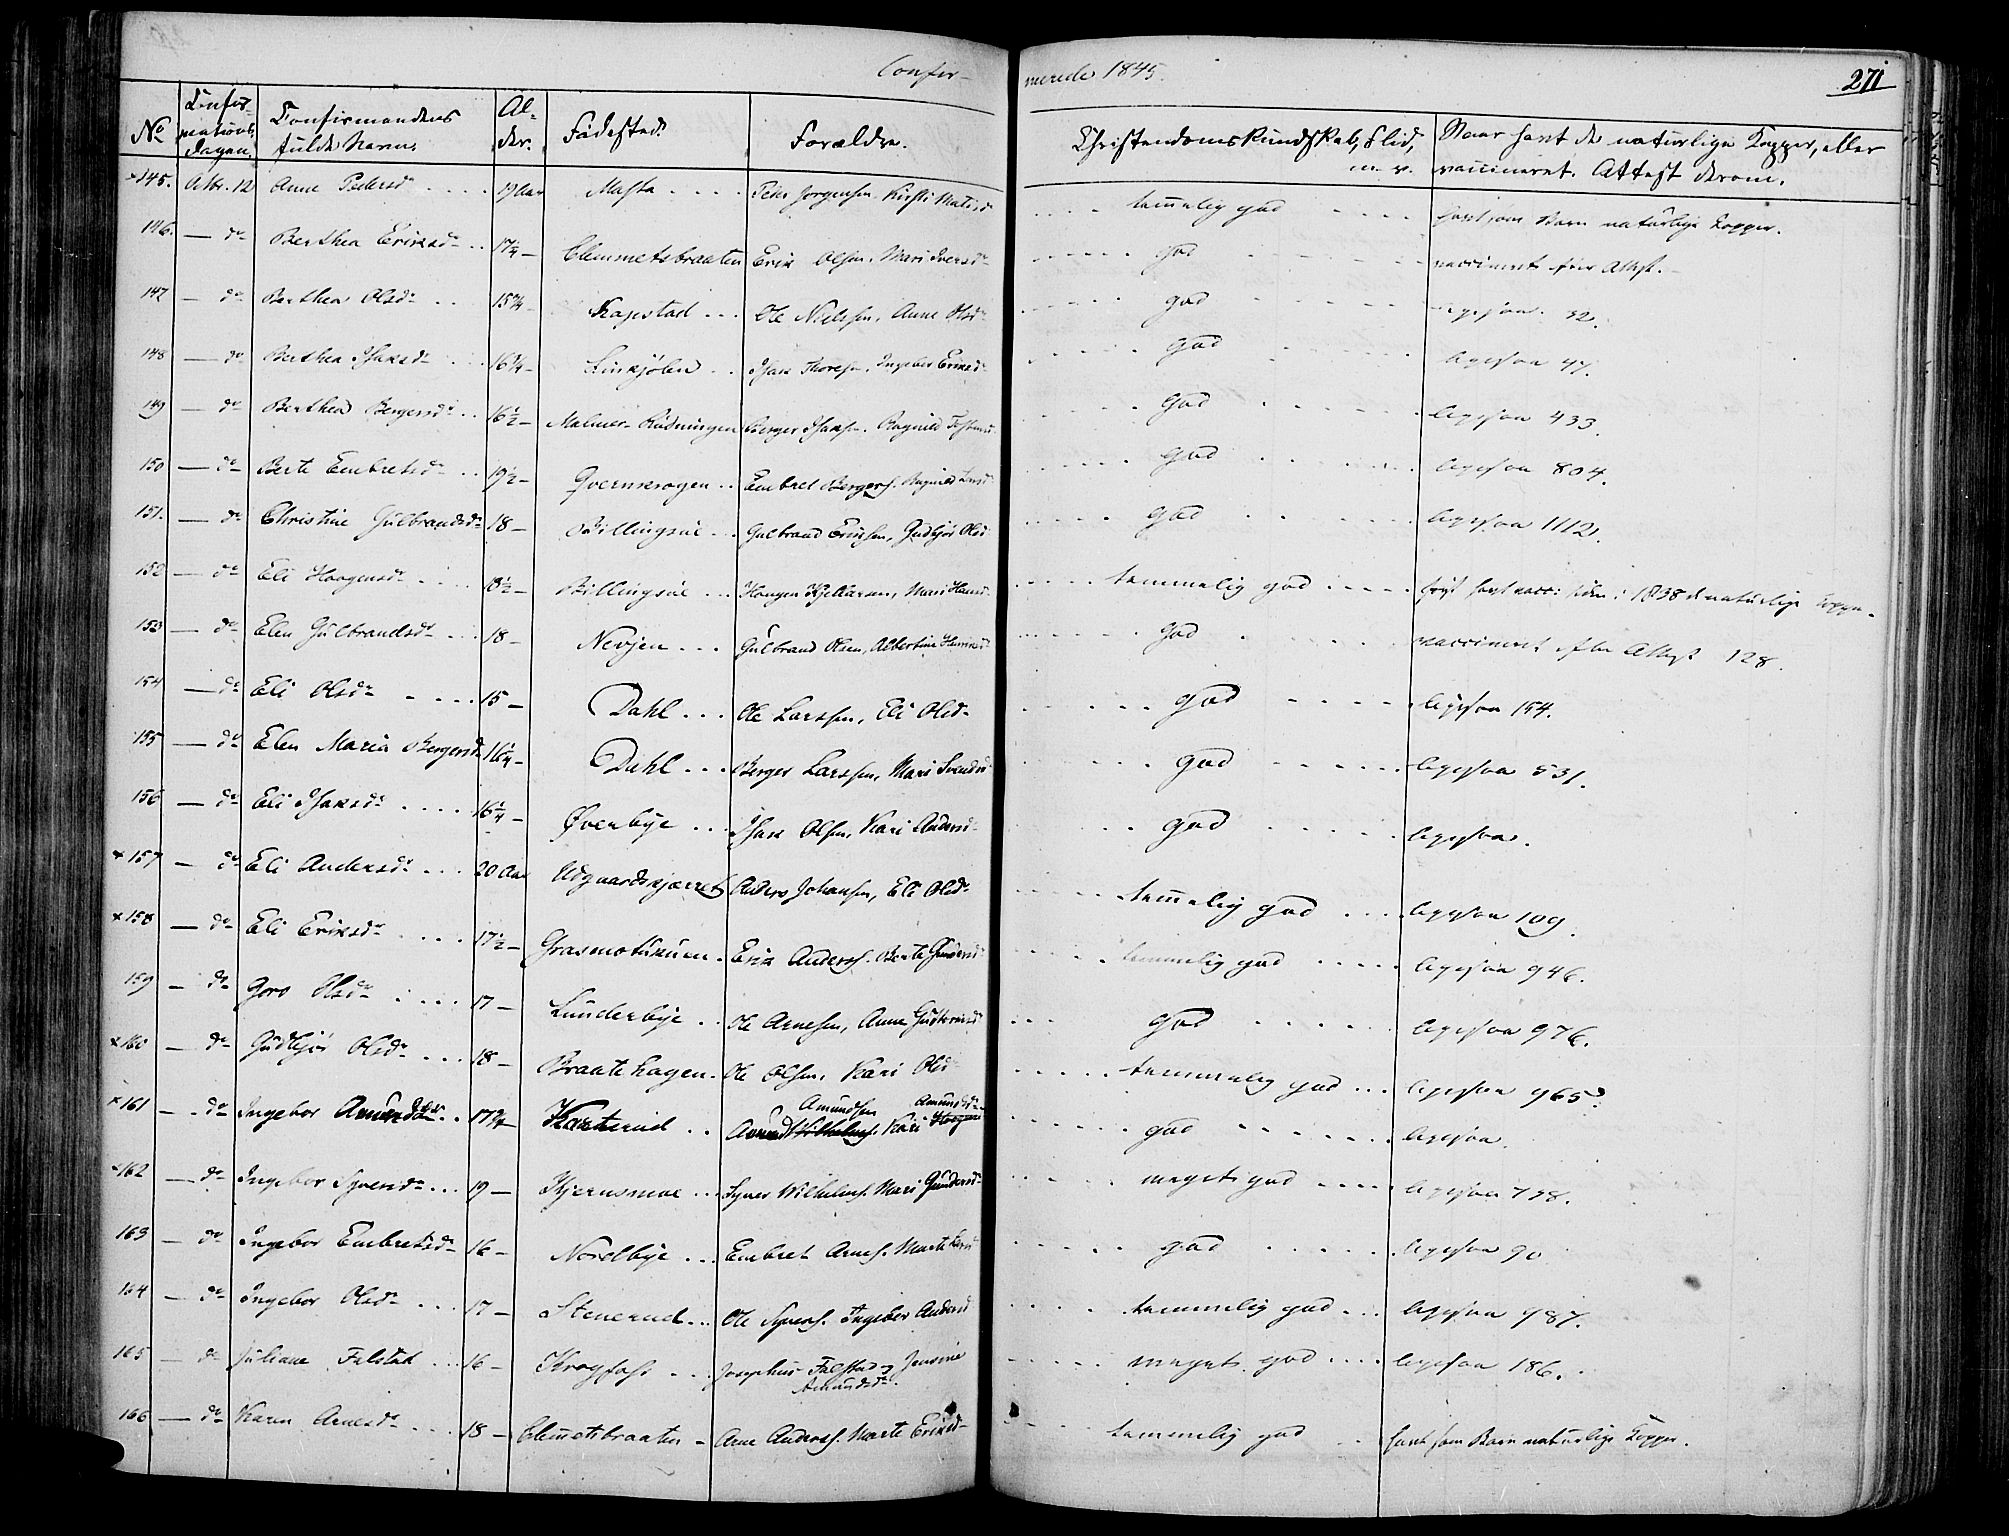 Confirmerede 1845.
271
No Confirmations dagen. Confirmandens fulde Navn. Alder. Fødested. Forældre. Christendomskundskab, Flid, m. v. Naar havt de naturlige Kopper, eller vaccineret. Attest derom.
145. 12 Anne Pedersdr 19 Aar Masta Peder Jørgensen Kirsti temelig god havt som Barn naturlige Kopper.
146. do Berthea Eriksdr 17¼ Clemmetsbraaten Erik Olsen, Mari god vaccineret efter Attest.
147 do Berthea Olsdr 15¾ Kagestad Ole Nielsen, Anne Olsdr god ligesaa 32.
148 do Berthea Isaksdr 16¼ Isak Thoresen, Ingebor Eriksdr god ligesaa 47.
149 do Berthea Bergersdr 16½ Malmer-Rudningen Berger Isaksen, Ragnild god ligesaa 433.
150 do Berte Embretsdr 19½ Qvernkrogen Embret Bergers. Ragnild Larsd god ligesaa 804.
151. do Christine Gulbrandsdr 18 Billingsöe Gulbrand Eriksen, Gudbjör Olsd god ligesaa 1112.
152 do Eli Haagensdr 18½ Billingsöe Haagen Kjeldsen, Mari Hansd temmelig god først havt vacc: siden i 1838 de naturlige Kopper.
153 do Elen Gulbrandsdr 18 Nevjen Gulbrand Olsen, Albertine god vaccineret efter Attest 128.
154 do Eli Olsdr 15 Dahl Ole Larssen, Eli Olsdr god ligesaa 154.
155 do Elen Maria Bergersdr 16¼ Dahl Berger Larssen, Mari god ligesaa 531.
156 do Eli Isaksdr 16¼ Øverbye Isak Olsen, Kari Andersd god ligesaa.
157 do Eli Andersdr 20 Aar Udgaardskjærret Anders Johansen, Eli Olsdr temelig god ligesaa 109.
158 do Eli Eriksdr 17½ Grasmotskuen Erik Anderss. Berte Gundersd temmelig god ligesaa 946.
159 do Goro Olsdr 17 Lunderbye Ole Arnesen, Anne Guttormsd god ligesaa 976.
160 do Gudbjør Olsdr 18 Braatehagen Ole Olsen, Kari Olsd temmelig god ligesaa 965.
161 do Ingebor Amundsdr 17¾ Kanterud Amundsen Kari Amundsdr god ligesaa.
162 do Ingebor Syversdr 19 Kjernsmoe Syver Wilhelms. Mari Gundersd meget god ligesaa 738.
163 do Ingebor Embretsdr 16 Nordbye Embret Arnes. Marte Larsd god ligesaa 90
164 do Ingebor Olsdr 17 Stenerud Ole Syvers. Ingebor Andersd temmelig god ligesaa 987.
165 do Juliane Falstad 16 Krogfos Josephus Falstad og Jensine Amundsdr meget god ligesaa 186.
166 do Karen Arnesdr 18 Clemetsbraaten Arne Anderss. Marte Eriksd temmelig god havt som Barn naturlige Kopper.